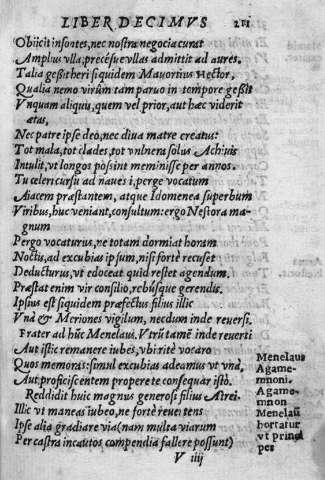 LIBER DECIMVS 211
Obiicit insontes, nec nostra negocia curat
Amplius vlla, precésue vllas admittit ad aures.
Talia geßit heri siquidem Mauortius Hector,
Qualia nemo virûm tam paruo in tempore geßit
Vnquam aliquis, quem vel prior, aut hæc viderit
ætas,
Nec patre ipse deo, nec diua matre creatus:
Tot mala, tot clades, tot vulnera solus Achiuis
Intulit, vt longos poßint meminisse per annos.
Tu celeri cursu ad naues i, perge vocatum
Aiacem præstantem, atque Idomenea superbum
Viribus, huc veniant, consultum: ergo Nestora ma-
gnum
Pergo vocaturus, ne totam dormiat horam
Noctis, ad excubias ipsum, nisi fortè recuset
Deducturus, vt edoceat quid restet agendum.
Præstat enim vir consilio, rebúsque gerendis.
Ipsius est siquidem præfectus filius illic
Vnà & Meriones vigilum, necdum inde reuersi.
Frater ad hûc Menelaus. Vtrû tamē inde reuerti
Aut istic remanere iubes, vbi ritè vocaro
Quos memoras: simul excubias adeamus vt vnà,
Aut proficiscentem properè te consequar isto.
Reddidit huic magnus generosi filius Atrei.
Illic vt maneas iubeo, ne fortè reuertens
Ipse alia gradiare via (nam multa viarum
Per castra incautos compendia fallere possunt)
V iiij
Menelaus
Agame-
mnoni.
Agame-
mnon
Menelaū
hortatur
vt princi
pes